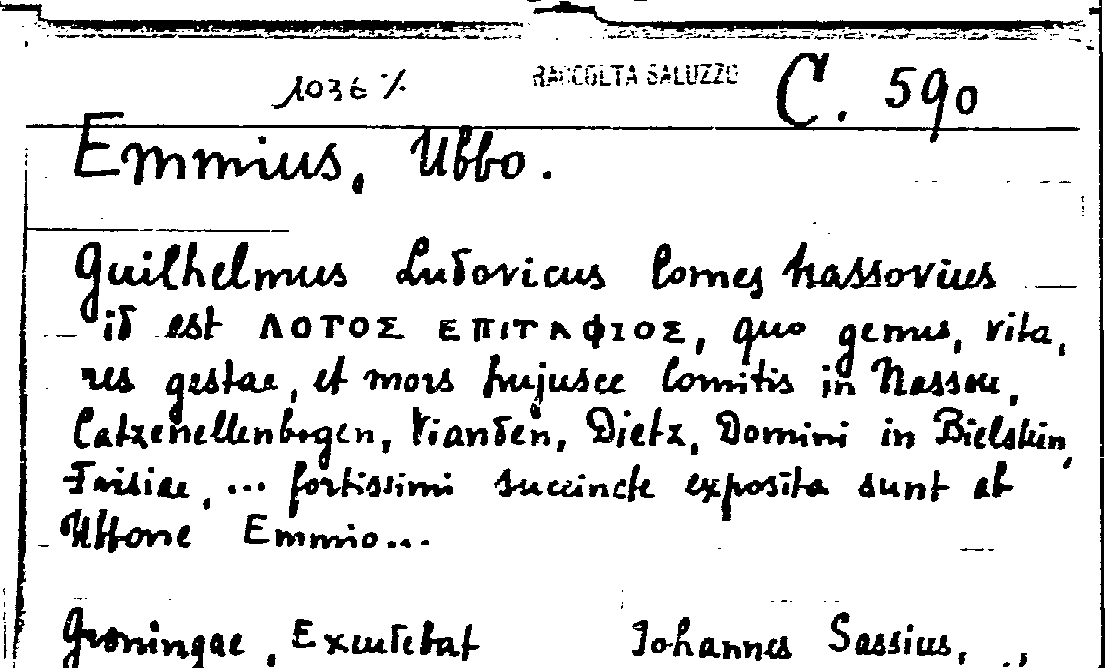 1036 % RACCOLTA SALUZZO C. 590
Emmius, Ubbo.
Guilhelmus Ludovicus Comes Nassovius
id est ΛΟΤΟΣ ΕΠΙΤΑΦΙΟΣ, quo genus, vita,
res gestae, et mors hujusce Comitis in Nassau,
Catzenellenbogen, Vianden, Dietz, Domini in Bielstein,
Frisiae, ... fortissimi succincte exposita sunt ab
Ubbone Emmio...
Groningae, Excudebat Johannes Sassius,